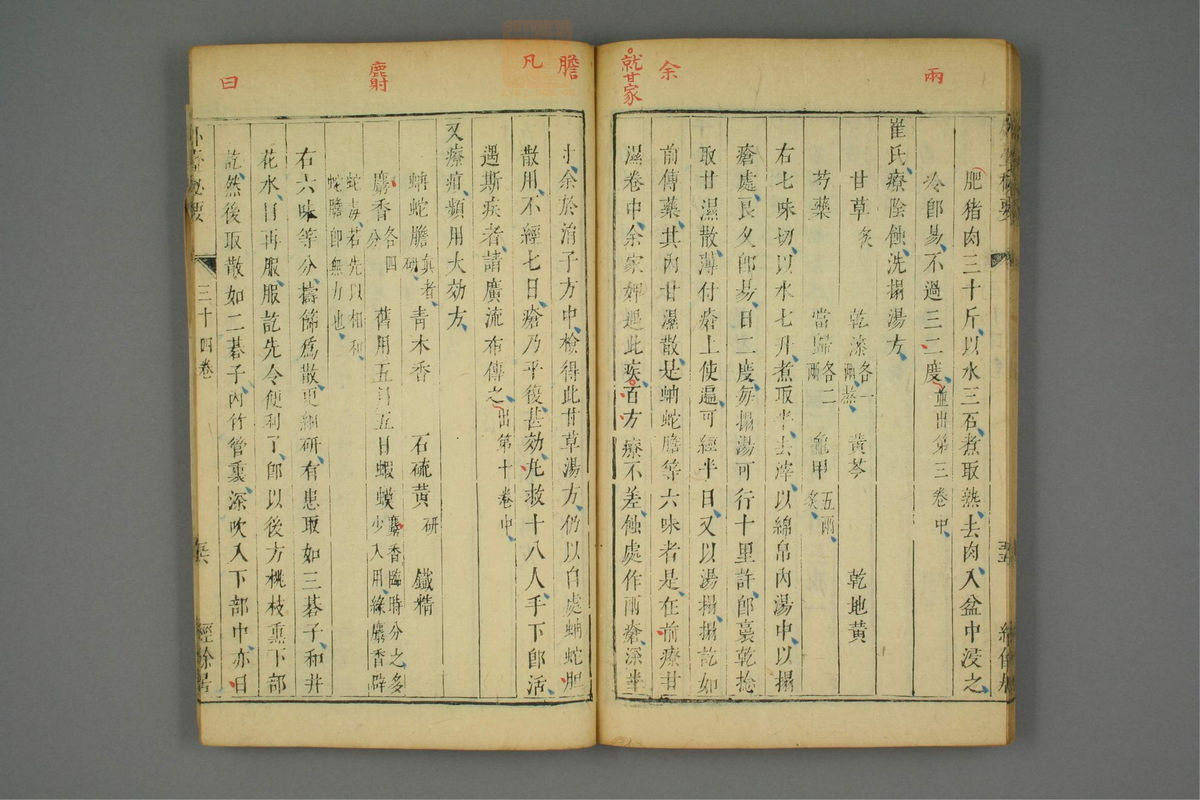 兩
余
就甘家
肥猪肉三十斤以水三石煮取熟去肉入盆中浸之
冷即易不過三二度並出第三卷中
崔氏療陰蝕洗搨湯方
甘草炙 乾漆各一兩熬 黃芩 乾地黃
芍藥 當歸各二兩 龜甲五兩炙
右七味切以水七升煮取半去滓以綿帛內湯中以搨
瘡處良久即易日二度每搨湯可行十里許即裛乾捻
取甘濕散薄付瘡上使遍可經半日又以湯搨搨訖如
前傅藥其內甘濕散是蚺蛇膽等六味者是在前療甘
濕卷中余家婢遇此疾百方療不差蝕處作兩瘡深半
膽
凡
麝
曰
寸余於消子方中檢得此甘草湯方仍以自處蚺蛇胆
散用不經七日瘡乃平復甚効凡救十八人手下即活
遇斯疾者請廣流布傳之出第十卷中
又療疳頻用大効方
蚺蛇膽真者研 青木香 石硫黃研 鐵精
麝香各四分 舊用五月五日蝦蟆麝香臨時分之多少入用緣麝香辟
蛇毒若先以相和蛇膽即無力也
右六味等分擣篩爲散更細研有患取如三碁子和井
花水日再服服訖先令便利了即以後方桃枝熏下部
訖然後取散如二碁子內竹管裏深吹入下部中亦日
三十四卷
經餘居